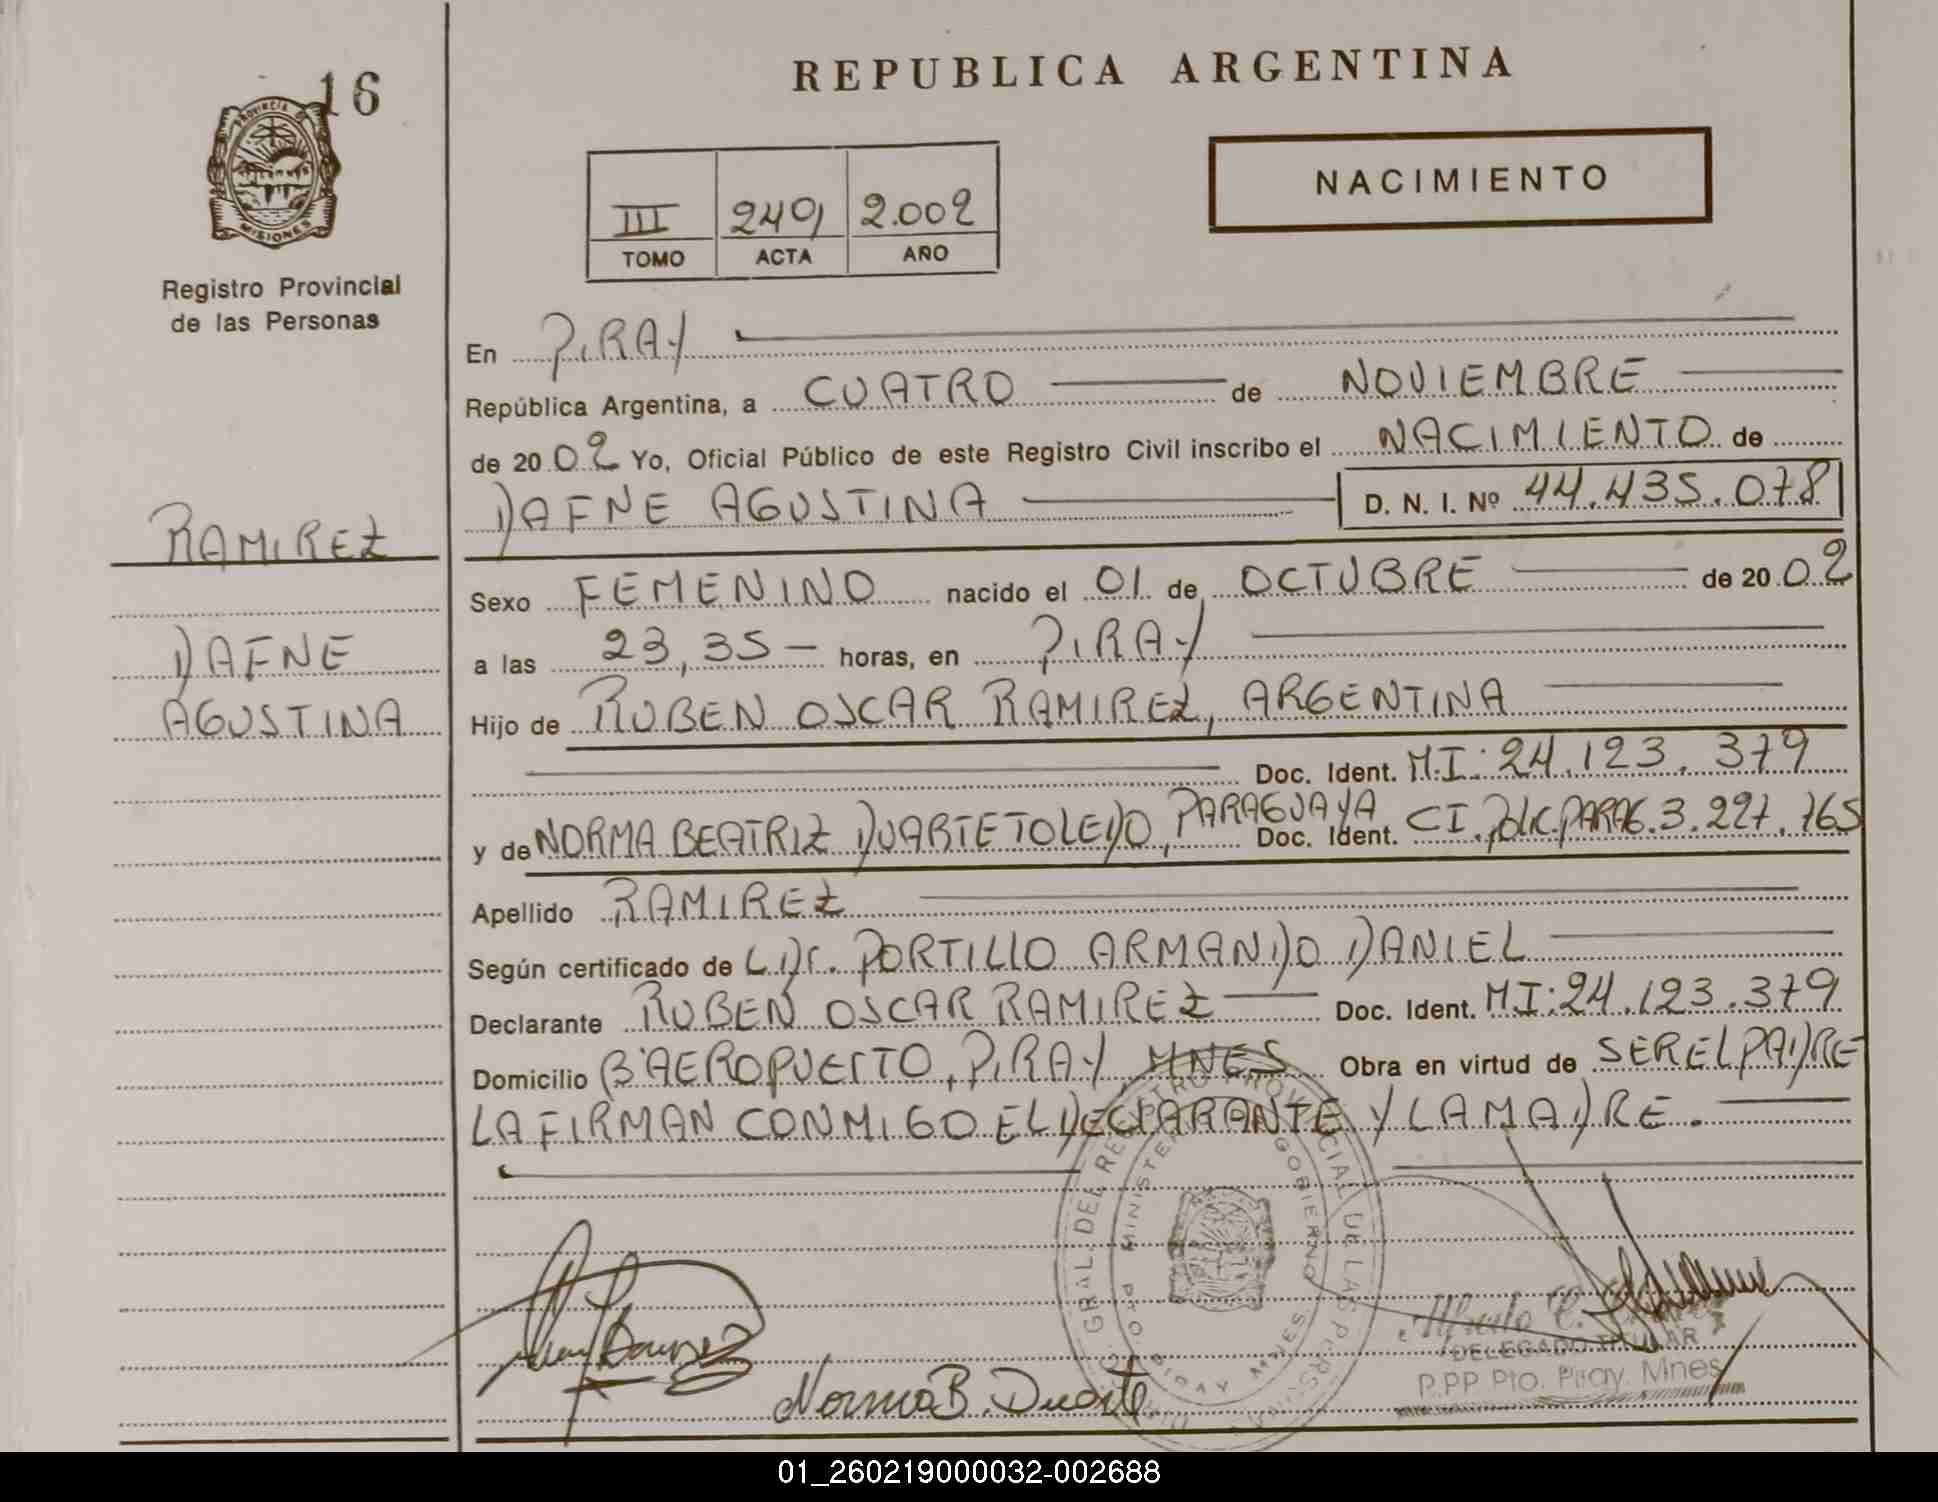 16
REPUBLICA ARGENTINA
NACIMIENTO
PROVINCIA DE
MISIONES
III 249 2.002
TOMO ACTA AÑO
Registro Provincial
de las Personas
En PIRAY
República Argentina, a CUATRO de NOVIEMBRE
de 2002 Yo, Oficial Público de este Registro Civil inscribo el NACIMIENTO de
DAFNE AGUSTINA D. N. I. Nº 44.435.078
RAMIREZ
DAFNE
AGUSTINA
Sexo FEMENINO nacido el 01 de OCTUBRE de 2002
a las 23,35 - horas, en PIRAY
Hijo de RUBEN OSCAR RAMIREZ, ARGENTINA
Doc. Ident. M.I: 24.123.379
y de NORMA BEATRIZ DUARTE TOLEDO, PARAGUAYA Doc. Ident. CI. Polic. PARAG. 3.227.765
Apellido RAMIREZ
Según certificado de LDC. PORTILLO ARMANDO DANIEL
Declarante RUBEN OSCAR RAMIREZ Doc. Ident. MI: 24.123.379
Domicilio Bº AEROPUERTO, PIRAY MNES Obra en virtud de SER EL PADRE
LA FIRMAN CONMIGO EL DECLARANTE Y LA MADRE.
GRAL. DEL REGISTRO PROVINCIAL DE LAS PERSONAS
MINISTERIO GOBIERNO
PTO. PIRAY MNES
Norma B. Duarte
Alfredo C.
DELEGADO TITULAR
P.PP Pto. Piray. Mnes
01_260219000032-002688